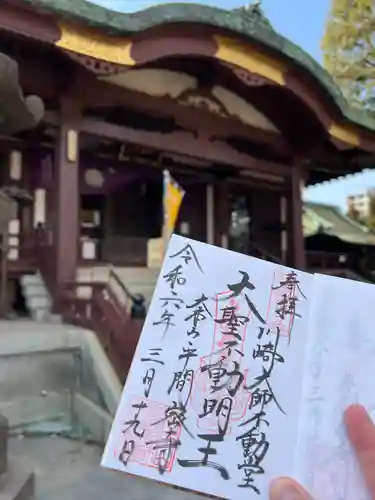 奉拝
川崎大師不動堂
大聖不動明王
大本山平間寺
令和六年三月十九日